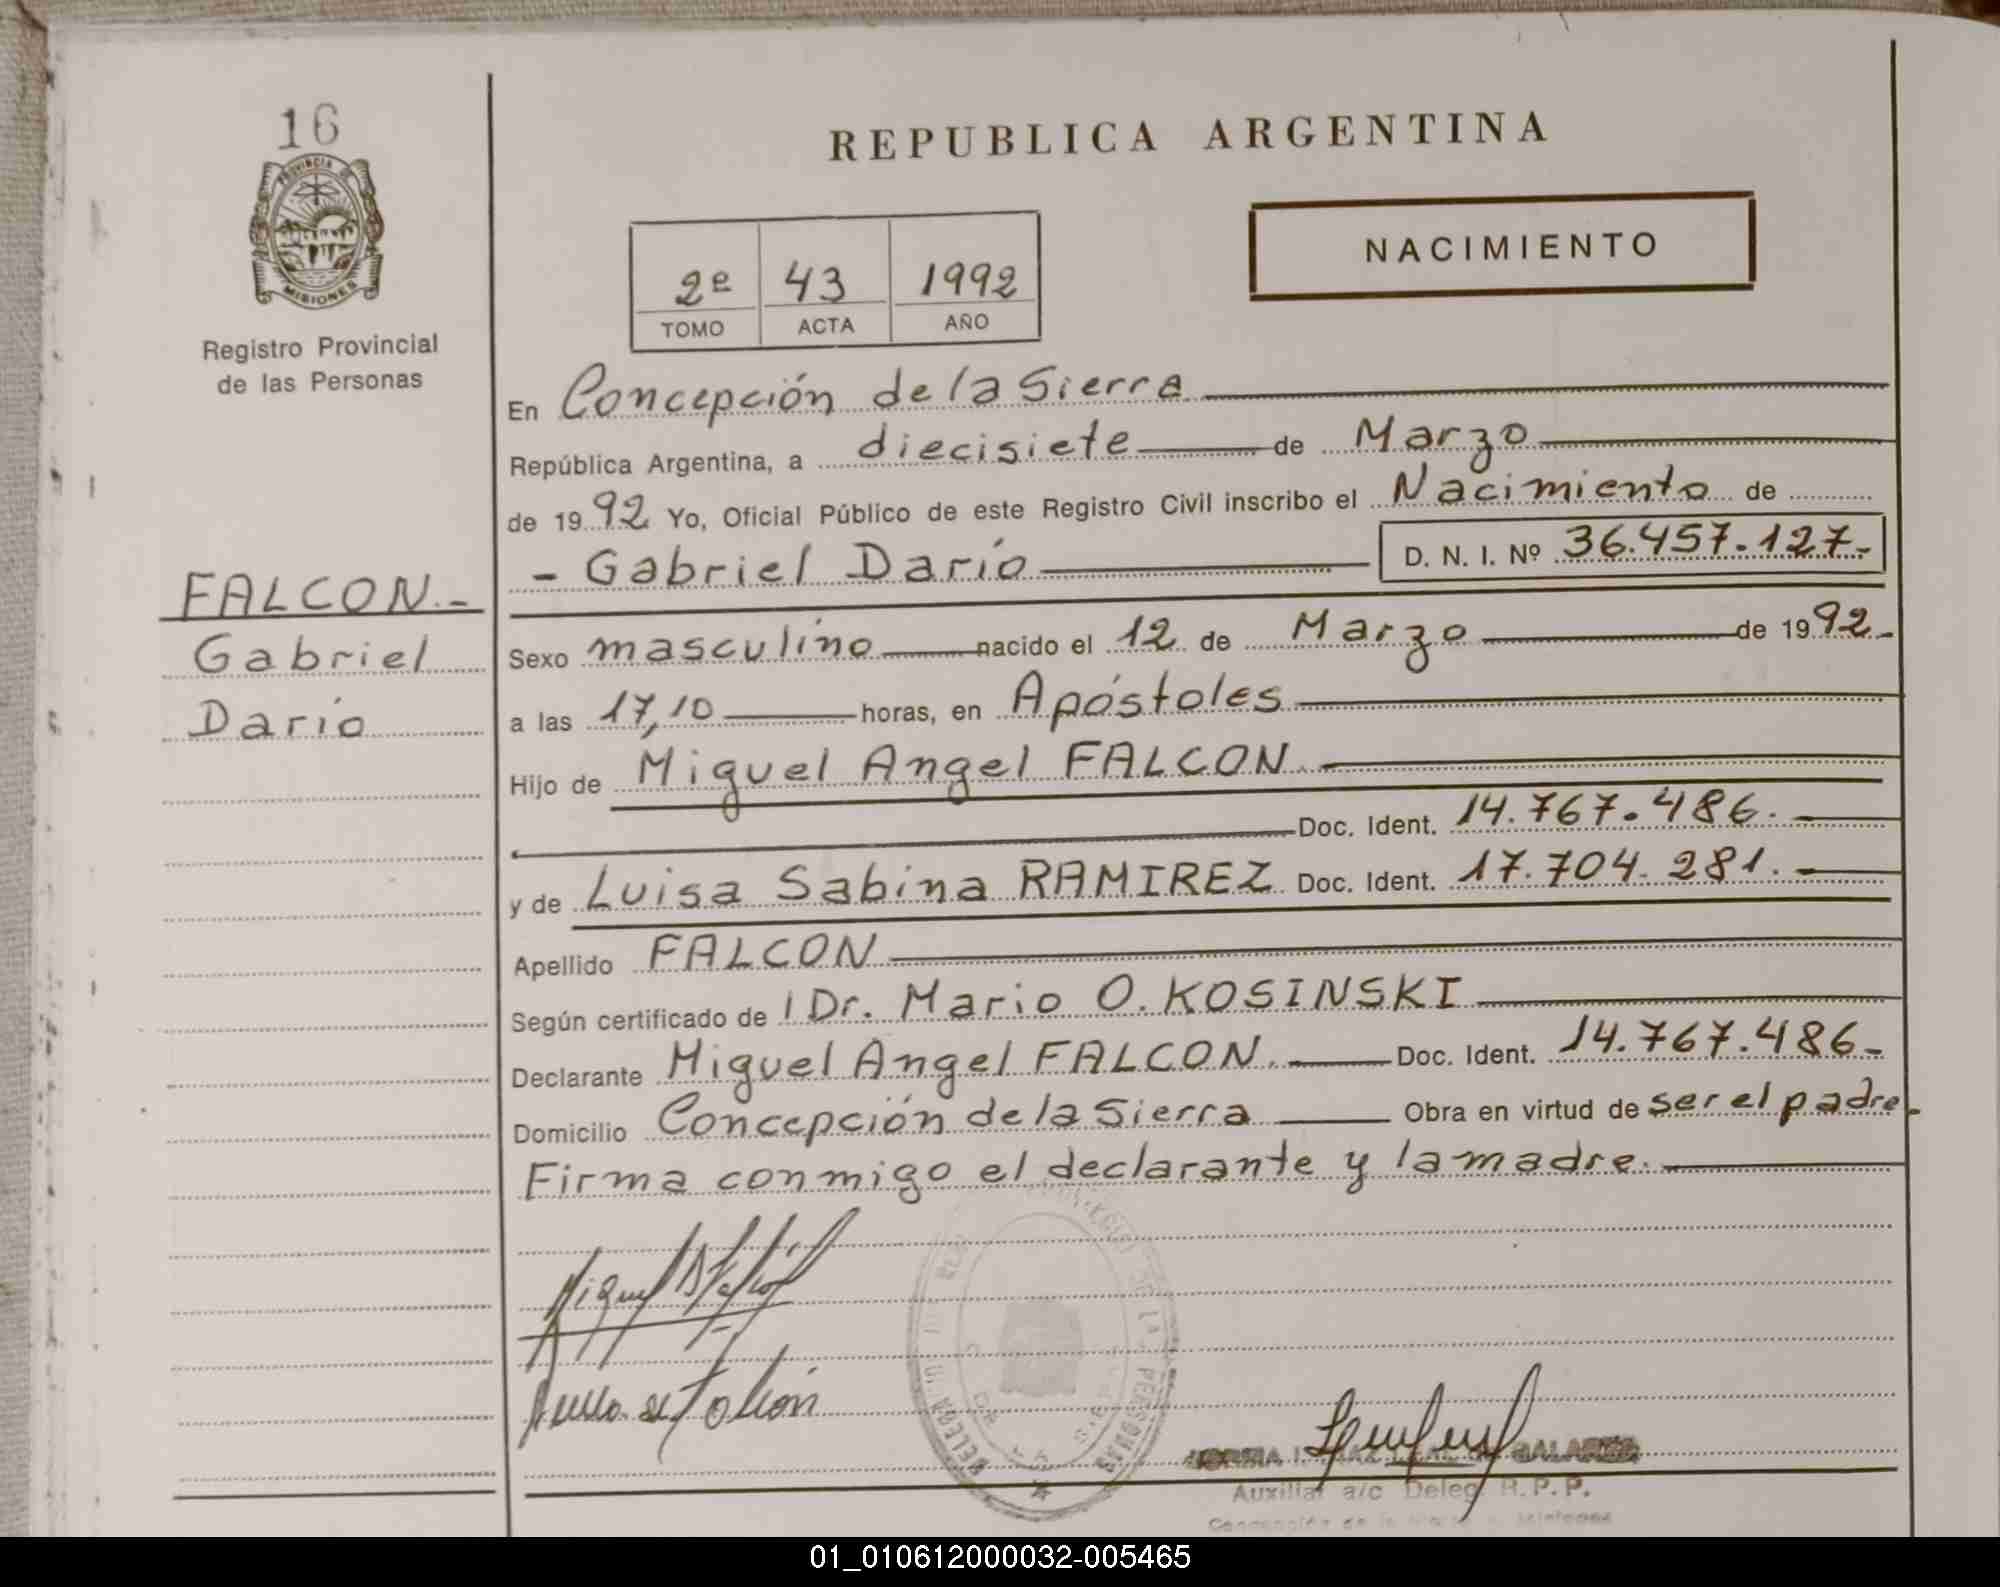 16
PROVINCIA DE
MISIONES
Registro Provincial
de las Personas
FALCON.-
Gabriel
Darío
REPUBLICA ARGENTINA
NACIMIENTO
2e 43 1992
TOMO ACTA AÑO
En Concepción de la Sierra
República Argentina, a diecisiete de Marzo
de 1992 Yo, Oficial Público de este Registro Civil inscribo el Nacimiento de
- Gabriel Darío D. N. I. Nº 36.457.127-
Sexo masculino nacido el 12 de Marzo de 1992-
a las 17,10 horas, en Apóstoles
Hijo de Miguel Angel FALCON.
Doc. Ident. 14.767.486.
y de Luisa Sabina RAMIREZ Doc. Ident. 17.704.281.
Apellido FALCON
Según certificado de l Dr. Mario O. KOSINSKI
Declarante Miguel Angel FALCON. Doc. Ident. 14.767.486-
Domicilio Concepción de la Sierra Obra en virtud de ser el padre.
Firma conmigo el declarante y la madre.
Auxiliar a/c Deleg. R.P.P.
Concepción de la Sierra Misiones
01_010612000032-005465